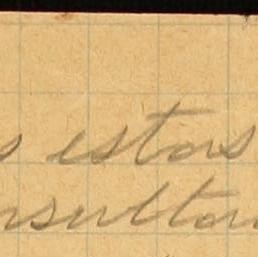 s estas
nsultar